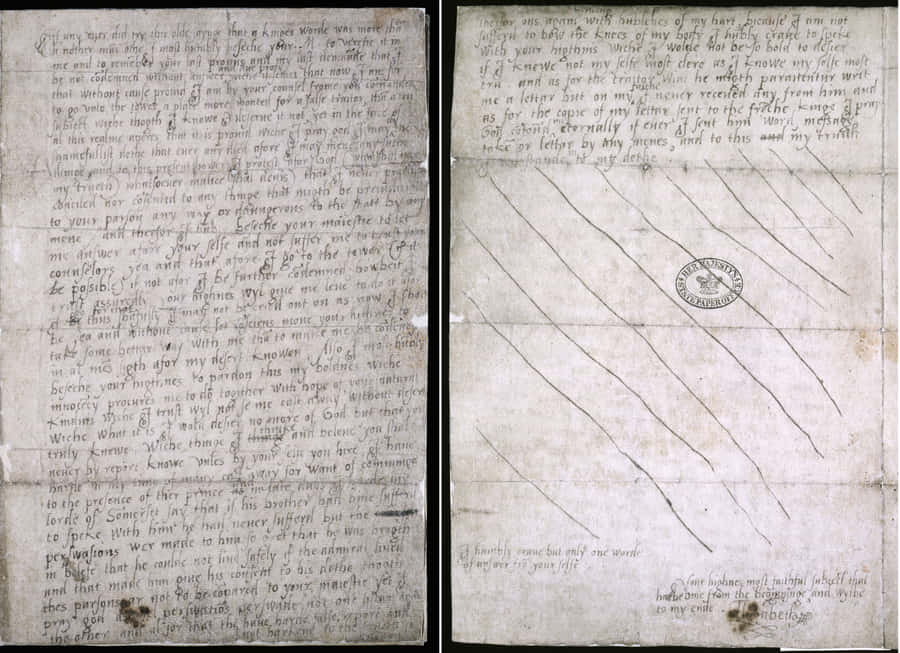 If any ever did try this olde saynge that a kinges worde was more than
a nother mans othe I most humbly beseche your M. to verefie it in
me and to remember your last promis and my last demaunde that I
be not condemned without answer and due profe wiche it semes that now I am for
that without cause provid I am by your counsel frome you commanded
to go unto the tower a place more wonted for a false traitor, than a tru
subject wiche thogth I knowe I deserve it not, yet in the face of
al this realme aperes that it is provid wiche I pray god I may dy the
shamefullist dethe that ever any died afore I may mene any suche
thinge and to this present hower I protest afor God (who shal juge
my trueth) whatsoever malice shal devis) that I never practised
conciled nor consentid to any thinge that migth be prejudicial
to your parson any way or daungerous to the stat by any
mene and therfor I humbly beseche your maiestie to let
me answer afore your selfe and not suffer me to trust your
counselors yea and that afore I go to the tower (if it
be possible) if not afor I be further condemned howbeit I
trust assuredly your highnes wyl give me leve to do it afor
I go for that thus shamfully I may not be cried out on as now I shal
be yea and without cause let consciens move your hithnes to
take some bettar way with me than to make me be condemned
in al mens sigth afor my desert knowen. Also I most humbly
beseche your higthnes to pardon this my boldnes wiche
innocency procures me to do togither with hope of your natural
kindnis wiche I trust wyl not se me cast away without desert
wiche what it is I wold desier no more of God but that you
truly knewe. Wiche thinge I thinke and beleve you shal
never by report knowe unles by your selfe you hire. I have
harde in my time of many cast away for want of comminge
to the presence of ther prince and in late days I harde my
lorde of Somerset say that if his brother had bine sufferd
to speke with him he had never sufferd but the
perswasions wer made to him so gret that he was brogth
in belefe that he coulde not live safely if the admiral lived
and that made him give his consent to his dethe thogth
thes parsons ar not to be compared to your maiestie yet I
pray god as perswations perswade not one sistar again
the other and al for that the have harde false report and
not harkene to the trueth
therfor ons again with humblenes of my hart, bicause I am not
sufferd to bow the knees of my body I humbly crave to speke
with your higthnis wiche I wolde not be so bold to desier
if I knewe not my selfe most clere as I knowe my selfe most
tru. and as for the traitor Wiat he migth paraventur writ
me a lettar but on my faithe I never receved any from him and
as for the copie of my lettar sent to the frenche kinge I pray
God confound me eternally if ever I sent him word, message,
token or lettar by any menes, and to this my truith
I wil stande to my dethe
HER MAJESTY'S
STATE PAPER OFFICE
I humbly crave but only one worde
of answer fro your selfe
Your highnes most faithful subject that
hathe bine from the beginninge, and wylbe
to my ende. Elizabeth